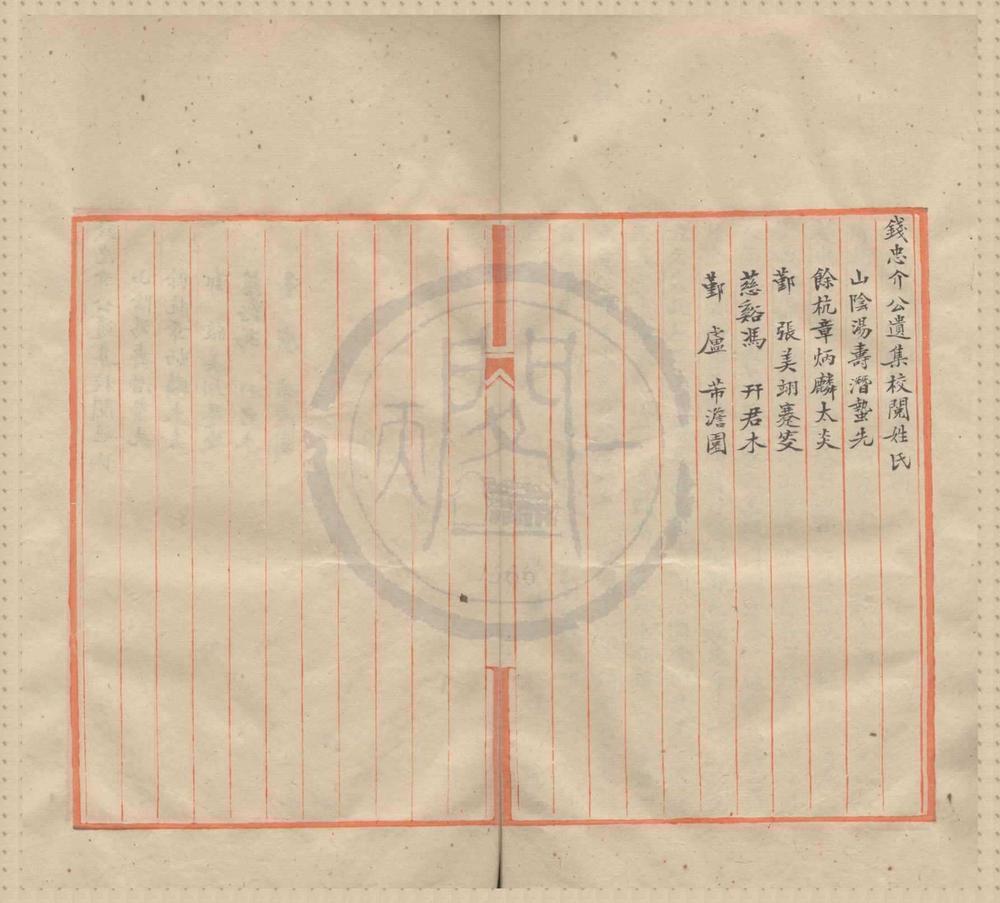 錢忠介公遺集校閱姓氏
山陰湯壽潛蟄先
餘杭章炳麟太炎
鄞 張美翊蹇叟
慈谿馮 幵君木
鄞 盧 芾澹園
天一閣